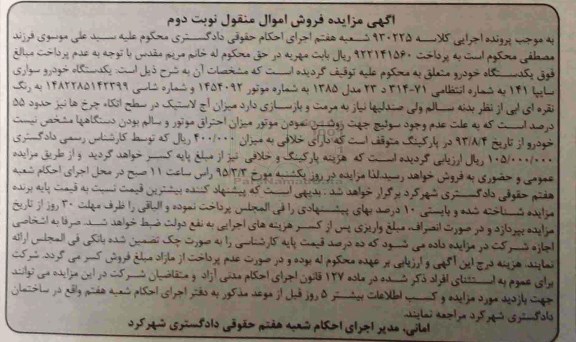 آگهی مزایده فروش اموال منقول نوبت دوم
به موجب پرونده اجرایی کلاسه ۹۳۰۲۲۵ شعبه هفتم اجرای احکام حقوقی دادگستری محکوم علیه سید علی موسوی فرزند
مصطفی محکوم است به پرداخت ۹۲۲۱۴۱۵۶۰ ریال بابت مهریه در حق محکوم له خانم مریم مقدس با توجه به عدم پرداخت مبالغ
فوق یکدستگاه خودرو متعلق به محکوم علیه توقیف گردیده است که مشخصات آن به شرح ذیل است. یکدستگاه خودرو سواری
سایپا ۱۴۱ به شماره انتظامی ۷۱-۳۱۴ د ۲۳ مدل ۱۳۸۵ به شماره موتور ۱۴۵۴۰۹۲ و شماره شاسی ۱۴۸۲۲۸۵۱۴۲۳۹۹ به رنگ
نقره ای ابی از نظر بدنه سالم ولی صندلیها نیاز به مرمت و بازسازی دارد میزان آج لاستیک در سطح اتکاء چرخ ها نیز حدود ۵۵
درصد است که به علت عدم وجود سوئیچ جهت روشن نمودن موتور میزان احتراق موتور و سالم بودن دستگاهها مشخص نیست
خودرو از تاریخ ۹۳/۸/۴ در پارکینگ متوقف است که دارای خلافی به میزان ۴۰۰/۰۰۰ ریال که توسط کارشناس رسمی دادگستری
۱۰۵/۰۰۰/۰۰۰ ریال ارزیابی گردیده است که هزینه پارکینگ و خلافی نیز از مبلغ پایه کسر خواهد گردید و از طریق مزایده
عمومی و حضوری به فروش خواهد رسید.لذا مزایده در روز یکشنبه مورخ ۹۵/۳/۳ راس ساعت ۱۱ صبح در محل اجرای احکام شعبه
هفتم حقوقی دادگستری شهرکرد برگزار خواهد شد. بدیهی است که پیشنهاد کننده بیشترین قیمت نسبت به قیمت پایه برنده
مزایده شناخته شده و بایستی ۱۰ درصد بهای پیشنهادی را فی المجلس پرداخت نموده و الباقی را ظرف مهلت ۳۰ روز از تاریخ
مزایده بپردازد و در صورت انصراف، مبلغ واریزی پس از کسر هزینه های اجرایی به نفع دولت ضبط خواهد شد. صرفا به اشخاصی
اجازه شرکت در مزایده داده می شود که ده درصد قیمت پایه کارشناسی را به صورت چک تضمین شده بانکی فی المجلس ارائه
نمایند. هزینه درج این آگهی و ارزیابی بر عهده محکوم له بوده و در صورت عدم پرداخت از مازاد مبلغ فروش کسر می گردد. شرکت
برای عموم به استثنای افراد ذکر شده در ماده ۱۲۷ قانون اجرای احکام مدنی آزاد و متقاضیان شرکت در این مزایده می توانند
جهت بازدید مورد مزایده و کسب اطلاعات بیشتر ۵ روز قبل از موعد مذکور به دفتر اجرای احکام شعبه هفتم واقع در ساختمان
دادگستری شهرکرد مراجعه نمایند.
امانی، مدیر اجرای احکام شعبه هفتم حقوقی دادگستری شهرکرد